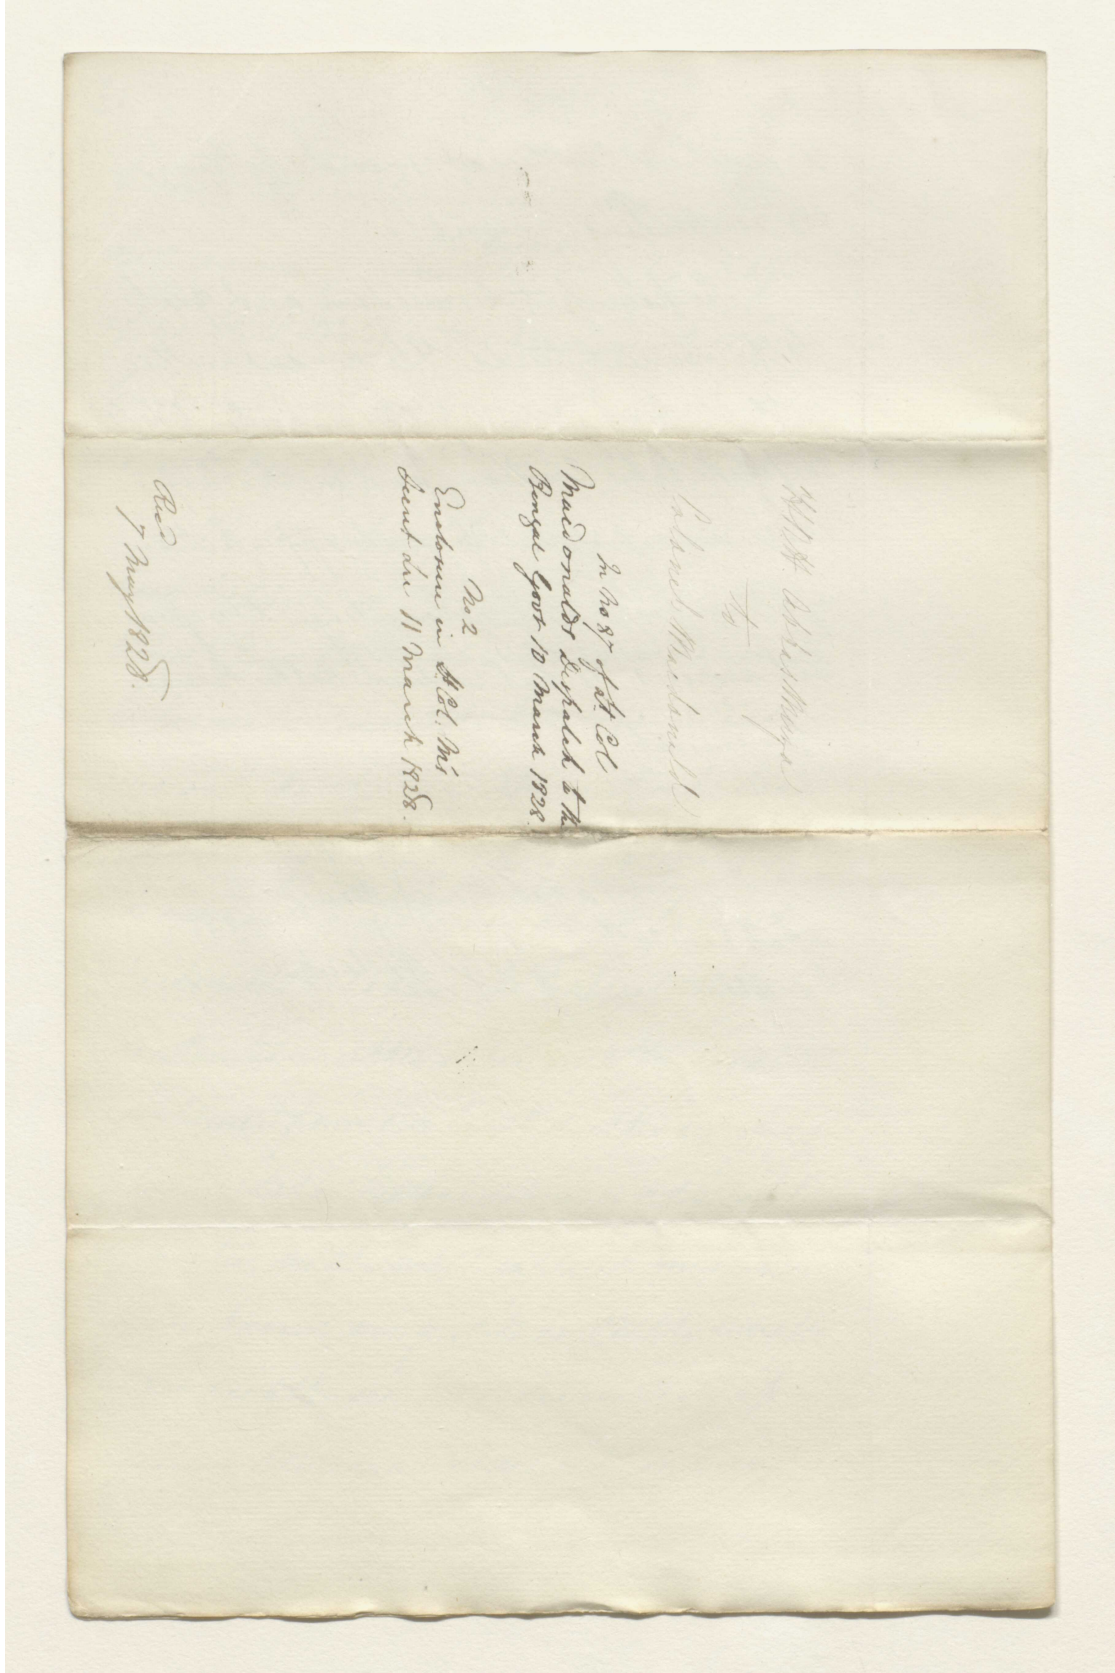 H.R.H. Abbas Meerza
to
Colonel Macdonald
In No 27 of Lt. Col
Macdonalds Despatch to the
Bengal Govt 10 March 1828.
No 2
Enclosure in Lt. Col. M's
Secret Lre 11 March 1828.
Recd
7 May 1828.